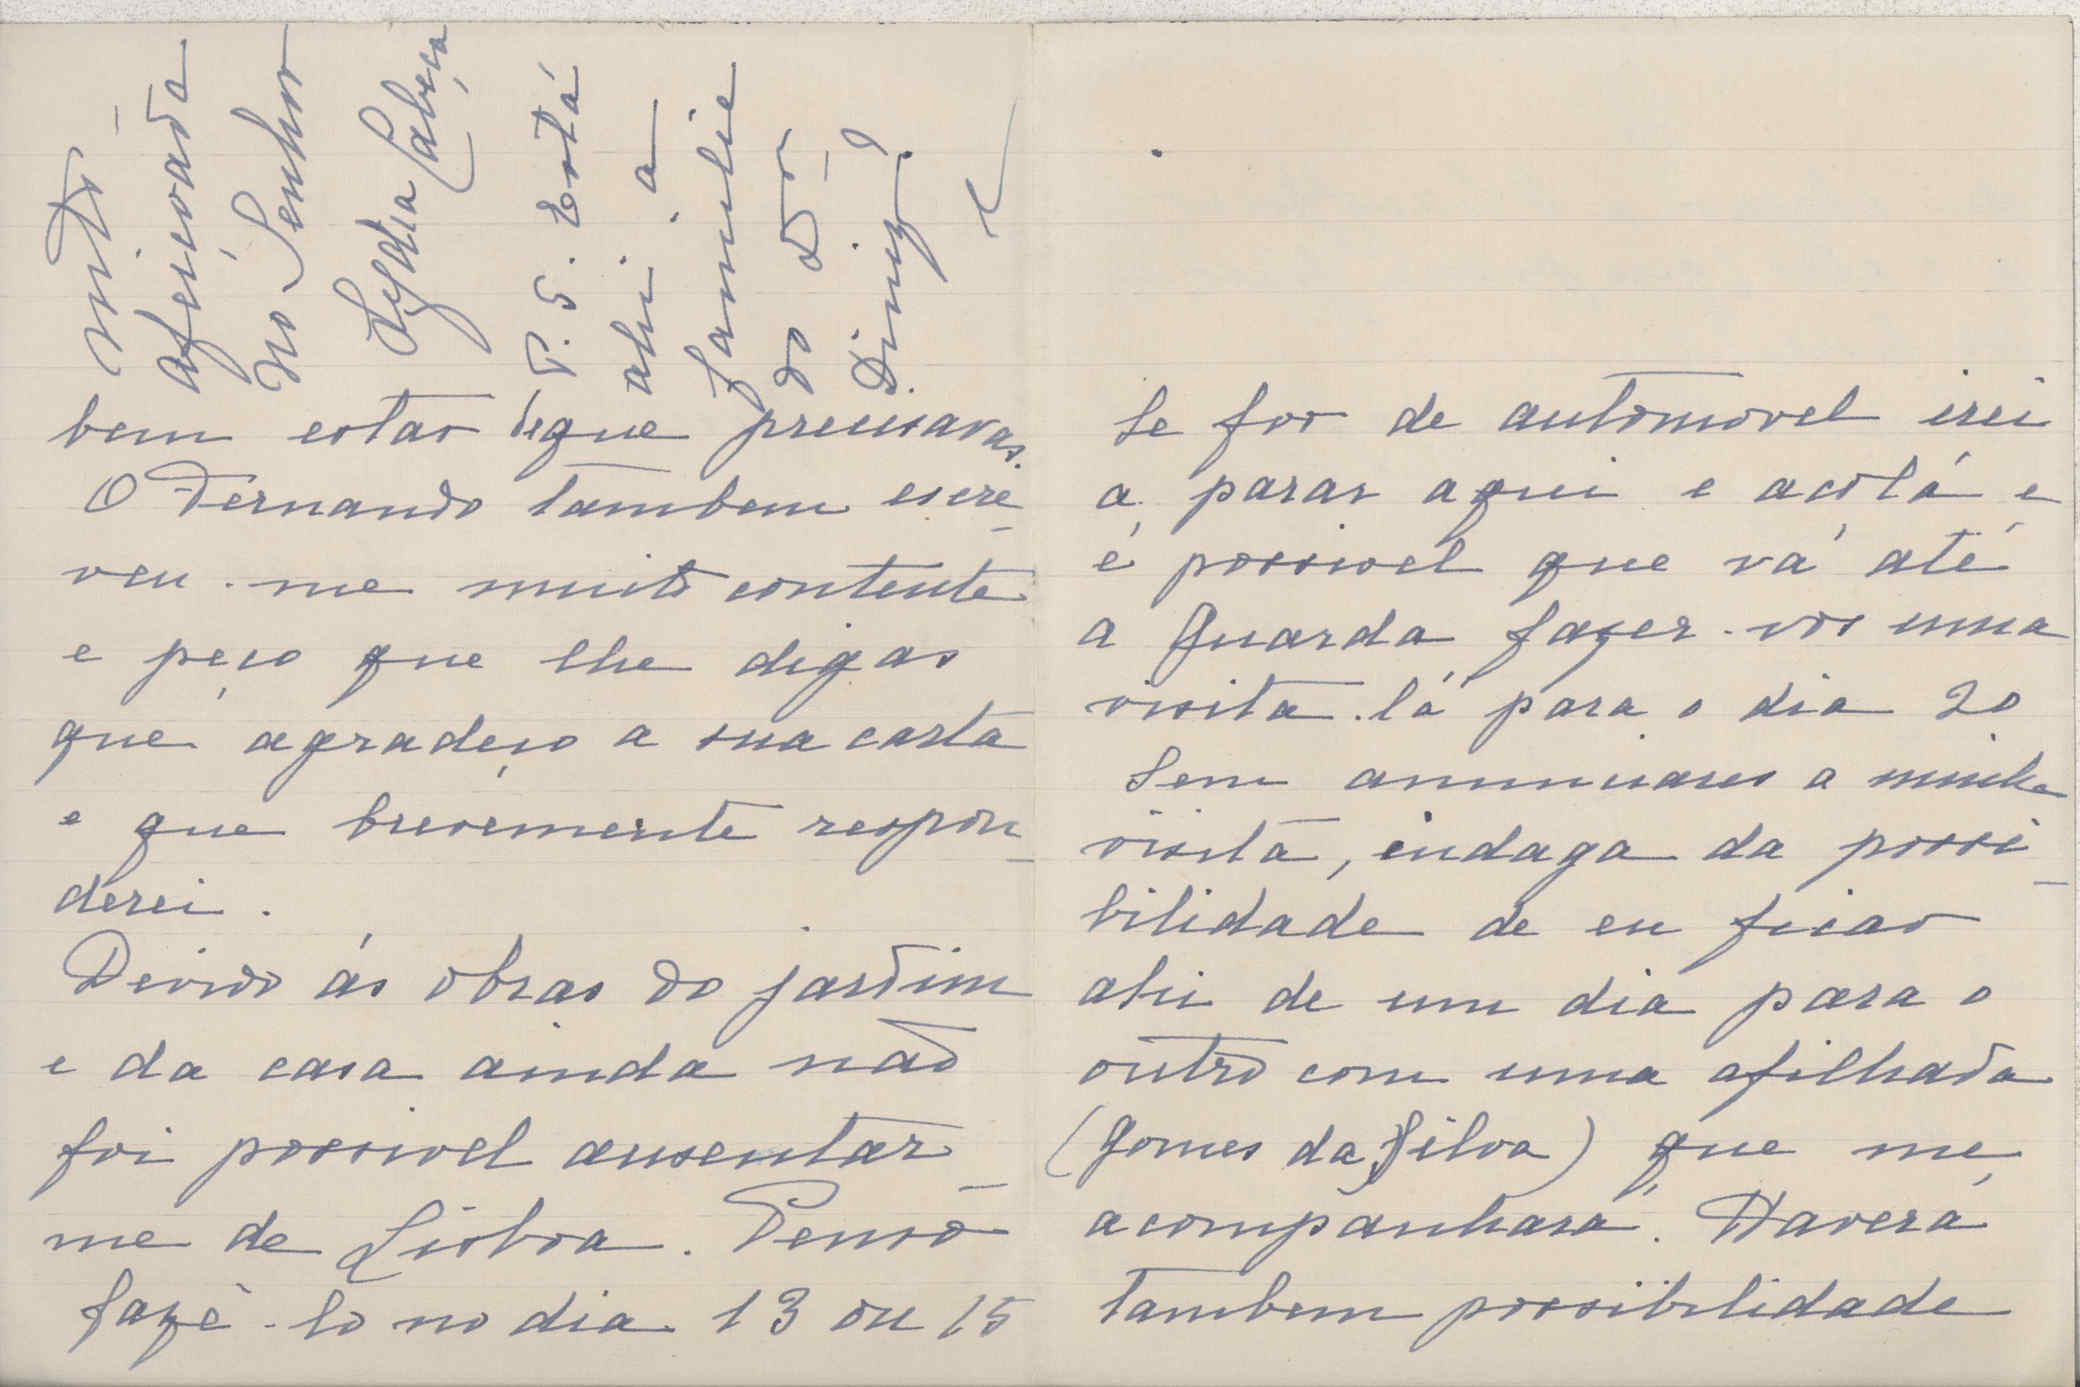 bem estar de que precisavas.
O Fernando tambem escre-
veu-me muito contente
e peço que lhe digas
que agradeço a sua carta
e que brevemente respon-
derei.
Devido ás obras do jardim
e da casa ainda não
foi possivel ausentar-
me de Lisboa. Penso
fazê-lo no dia 13 ou 15
Se for de automovel irei
a parar aqui e acolá e
é possivel que vá até
a Guarda fazer-vos uma
visita lá para o dia 20
Sem anunciares a minha
visita, indaga da possi-
bilidade de eu ficar
ahi de um dia para o
outro com uma afilhada
(Gomes da Silva) que me
acompanhará. Haverá
tambem possibilidade
Mto
afeiçoada
no Senhor
Lydia Cabeça
P.S. Está
ahi a
familia
do dor
Diniz?